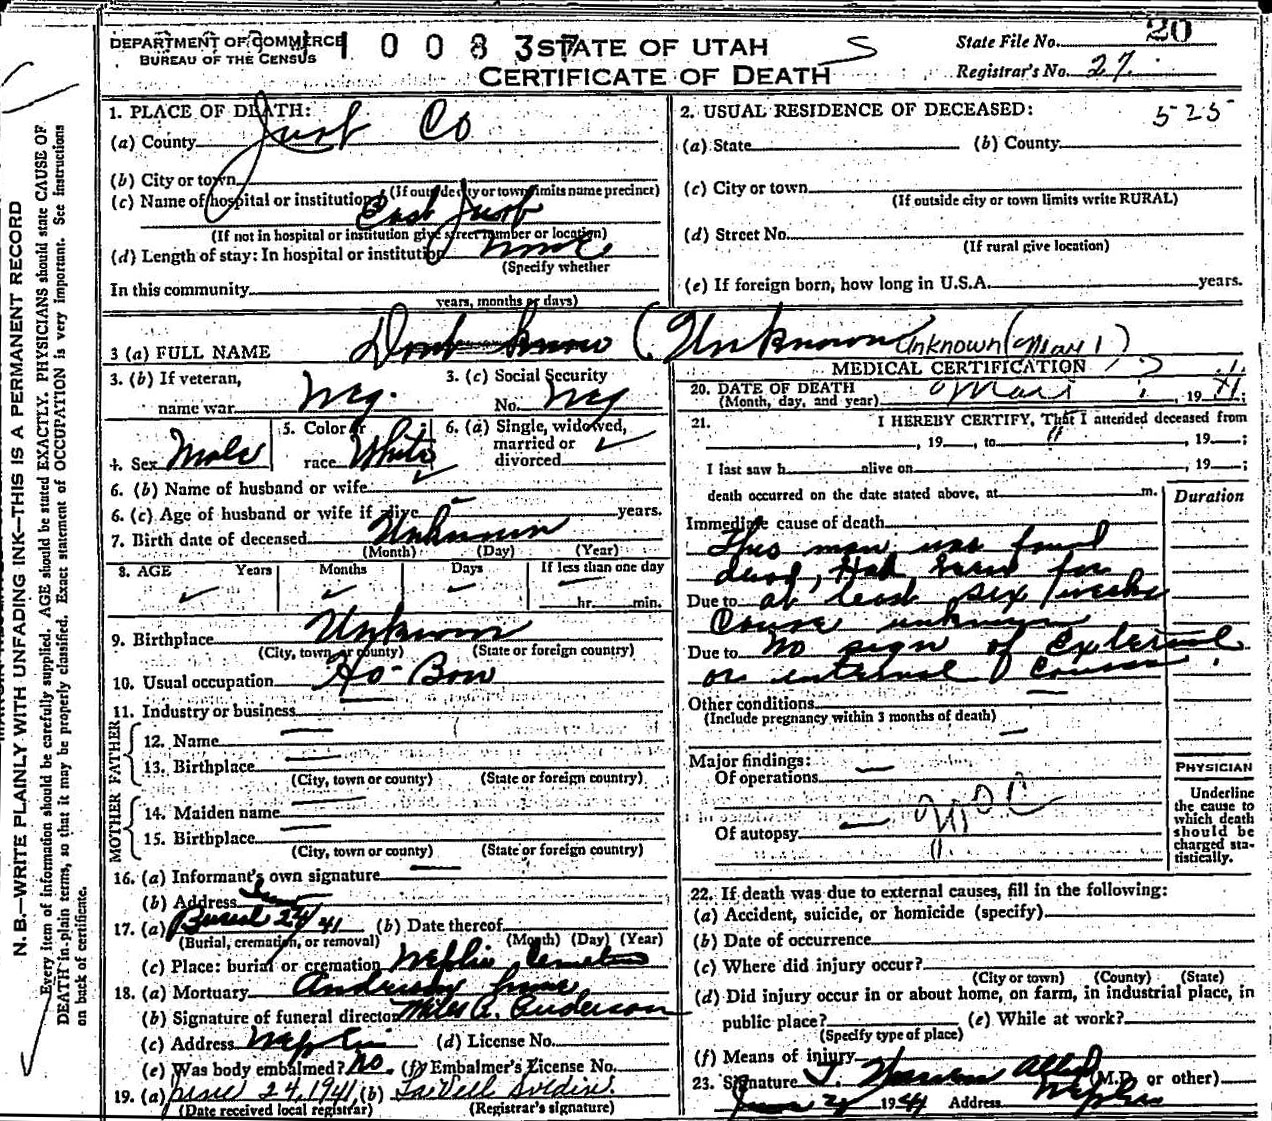 DEPARTMENT OF COMMERCE
BUREAU OF THE CENSUS
1 0 0 8 3 7
STATE OF UTAH
CERTIFICATE OF DEATH
State File No. 20
Registrar's No. 27
1. PLACE OF DEATH:
(a) County Juab Co
(b) City or town
(If outside city or town limits name precinct)
(c) Name of hospital or institution: East Juab
(If not in hospital or institution give street number or location)
(d) Length of stay: In hospital or institution none
(Specify whether
In this community
years, months or days)
2. USUAL RESIDENCE OF DECEASED: 525
(a) State (b) County
(c) City or town
(If outside city or town limits write RURAL)
(d) Street No.
(If rural give location)
(e) If foreign born, how long in U.S.A. years.
3 (a) FULL NAME Dont know (Unknown Unknown (Mar 1)
3. (b) If veteran,
name war Neg.
3. (c) Social Security
No. Neg
4. Sex Male
5. Color or
race White
6. (a) Single, widowed,
married or
divorced
6. (b) Name of husband or wife
6. (c) Age of husband or wife if alive years.
7. Birth date of deceased Unknown
(Month) (Day) (Year)
8. AGE Years Months Days If less than one day
hr. min.
9. Birthplace Unknown
(City, town or county) (State or foreign country)
10. Usual occupation Ho-Bow
11. Industry or business
FATHER
12. Name
13. Birthplace
(City, town or county) (State or foreign country)
MOTHER
14. Maiden name
15. Birthplace
(City, town or county) (State or foreign country)
16. (a) Informant's own signature
(b) Address
17. (a) Burial 24/41 (b) Date thereof
(Burial, cremation, or removal) (Month) (Day) (Year)
(c) Place: burial or cremation Nephi Cemetery
18. (a) Mortuary Anderson
(b) Signature of funeral director Miles A. Anderson
(c) Address Nephi (d) License No.
(e) Was body embalmed? No. (f) Embalmer's License No.
19. (a) June 24, 1941 (b)
(Date received local registrar) (Registrar's signature)
MEDICAL CERTIFICATION
20. DATE OF DEATH Mar 1, 1941
(Month, day, and year)
21. I HEREBY CERTIFY, That I attended deceased from
, 19 , to , 19 ;
I last saw h alive on , 19 ;
death occurred on the date stated above, at m.
Duration
Immediate cause of death
This man was found
dead, Had been for
Due to at least six weeks
Cause unknown
Due to No sign of External
or internal Causes.
Other conditions
(Include pregnancy within 3 months of death)
Major findings:
Of operations
Of autopsy
PHYSICIAN
Underline
the cause to
which death
should be
charged sta-
tistically.
22. If death was due to external causes, fill in the following:
(a) Accident, suicide, or homicide (specify)
(b) Date of occurrence
(c) Where did injury occur?
(City or town) (County) (State)
(d) Did injury occur in or about home, on farm, in industrial place, in
public place? (e) While at work?
(Specify type of place)
(f) Means of injury
23. Signature (M.D. or other)
June 24 1941 Address Nephi
N. B.—WRITE PLAINLY WITH UNFADING INK—THIS IS A PERMANENT RECORD
Every item of information should be carefully supplied. AGE should be stated EXACTLY. PHYSICIANS should state CAUSE OF
DEATH in plain terms, so that it may be properly classified. Exact statement of OCCUPATION is very important. See instructions
on back of certificate.